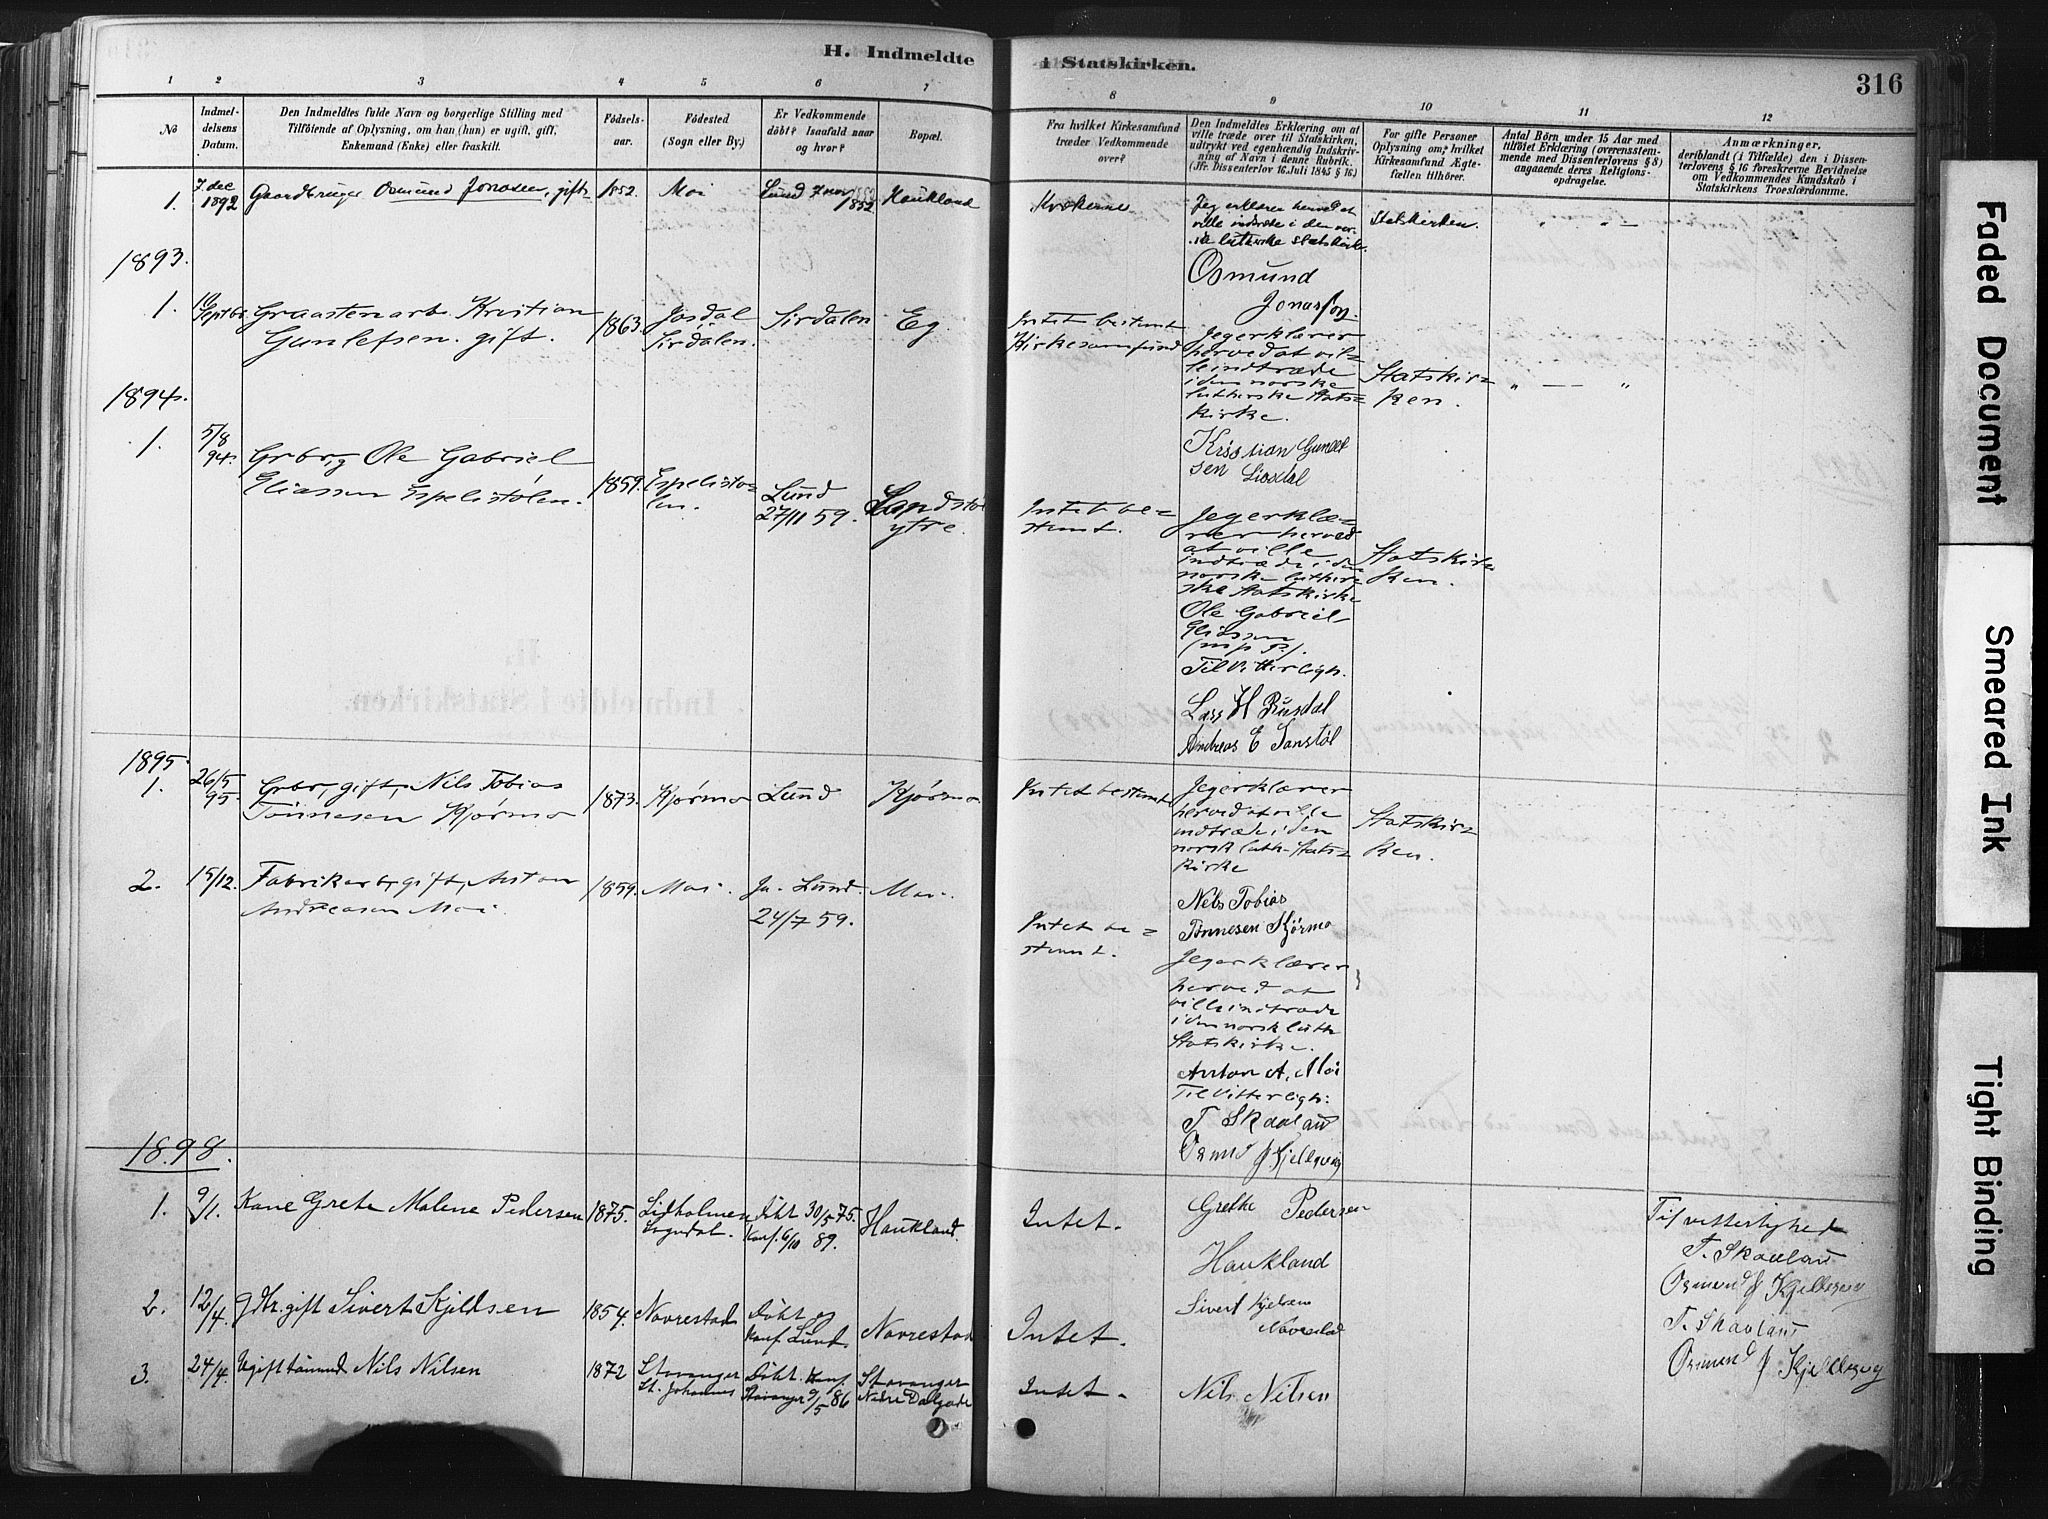 H. Indmeldte i Statskirken.
316
1 2 3 4 5 6 7 8 9 10 11 12
No
Indmel-
delsens
Datum.
Den Indmeldtes fulde Navn og borgerlige Stilling med
Tilföiende af Oplysning, om han (hun) er ugift, gift,
Enkemand (Enke) eller fraskilt.
Födsels-
aar.
Födested
(Sogn eller By.)
Er Vedkommende
döbt? Isaafald naar
og hvor?
Bopæl.
Fra hvilket Kirkesamfund
træder Vedkommende
over?
Den Indmeldtes Erklæring om at
ville træde over til Statskirken,
udtrykt ved egenhændig Indskriv-
ning af Navn i denne Rubrik.
(Jfr. Dissenterlov 16. Juli 1845 § 16.)
For gifte Personer
Oplysning om, hvilket
Kirkesamfund Ægte-
fællen tilhörer.
Antal Börn under 15 Aar med
tilföiet Erklæring (overensstem-
mende med Dissenterlovens § 8)
angaaende deres Religions-
opdragelse.
Anmærkninger,
deriblandt (i Tilfælde) den i Dissen-
terlovens § 16 foreskrevne Bevidnelse
om Vedkommendes Kundskab i
Statskirkens Troeslærdomme.
1.
7 dec
1892
Gaardbruger Osmund Jonasen, gift
1852.
Moi
Lund 7 nov
1852
Haukland
Kvækerne
Jeg erklærer herved at
ville indtræde i den nor-
ske lutherske statskirke.
Osmund
Jonassen
Statskirken.
" " —
1893.
1.
Septbr
Graastenarb. Kristian
Gunlefsen. gift.
1863.
Josdal
Sirdalen.
Sirdalen
Eg.
Intet bestemt
Kirkesamfund
Jeg erklærer
herved at vil=
le indtræde
i den norske
lutherske Stats=
kirke.
Kristian Gunlef
sen Liosdal
Statskir=
ken.
" — "
1894.
1.
5/8
94.
Grbr, Ole Gabriel
Eliassen Espelistølen.
1859.
Espelistø=
len.
Lund
27/11 59.
Sandstøl
ytre.
Intet be=
stemt.
Jeg erklæ=
rer herved
at ville
indtræde i den
norske luther=
ske Statskirke
Ole Gabriel
Eliassen
(m p P.)
Til Vitterligh.
Lars H Rusdal
Andreas E Sanstøl
Statskir=
ken.
1895.
1.
26/5
95.
Grbr, gift, Nils Tobias
Tönnesen Kjørmo
1873.
Kjørmo
Lund
Kjørmo
Intet bestemt
Jeg erklærer
herved at ville
indtræde i den
norsk luth. Stats=
kirke
Nels Tobias
Tønnesen Kjørmo
Statskir=
ken.
2.
15/12.
Fabrikarb, gift, Anton
Andreasen Moi.
1859.
Moi.
Ja. Lund.
24/7 59.
Moi.
Intet be=
stemt.
Jeg erklærer
herved at
ville indtræde
i den norsk luth
Statskirke.
Anton A. Moi
Til Vitterligh:
T Skaalaas
Osmund J Kjellesvig
1898.
1.
9/1.
Kone Grete Malene Pedersen
1875.
Lidholmen
Sogndal.
Döbt 30/5 75.
Konf. 6/10 89.
Haukland.
Intet.
Grethe Pedersen
Haukland
Til vitterlighed
T. Skaalaas
Osmund J Kjellesvig
2.
12/4.
gbr. gift Sivert Kjeldsen
1854.
Novrestad
Döbt og
konf. Lund.
Novrestad
Intet.
Sivert Kjelsen
Novrestad
T. Skaalaas
Osmund J Kjellesvig
3.
24/4.
Ugift tømmd Nils Nilsen
1872
Stavanger
St. Johannes
Döbt. Konf.
Stavanger 9/5 86
Stavanger
Nedre Dalgade
Intet.
Nils Nilsen
Faded Document
Smeared Ink
Tight Binding